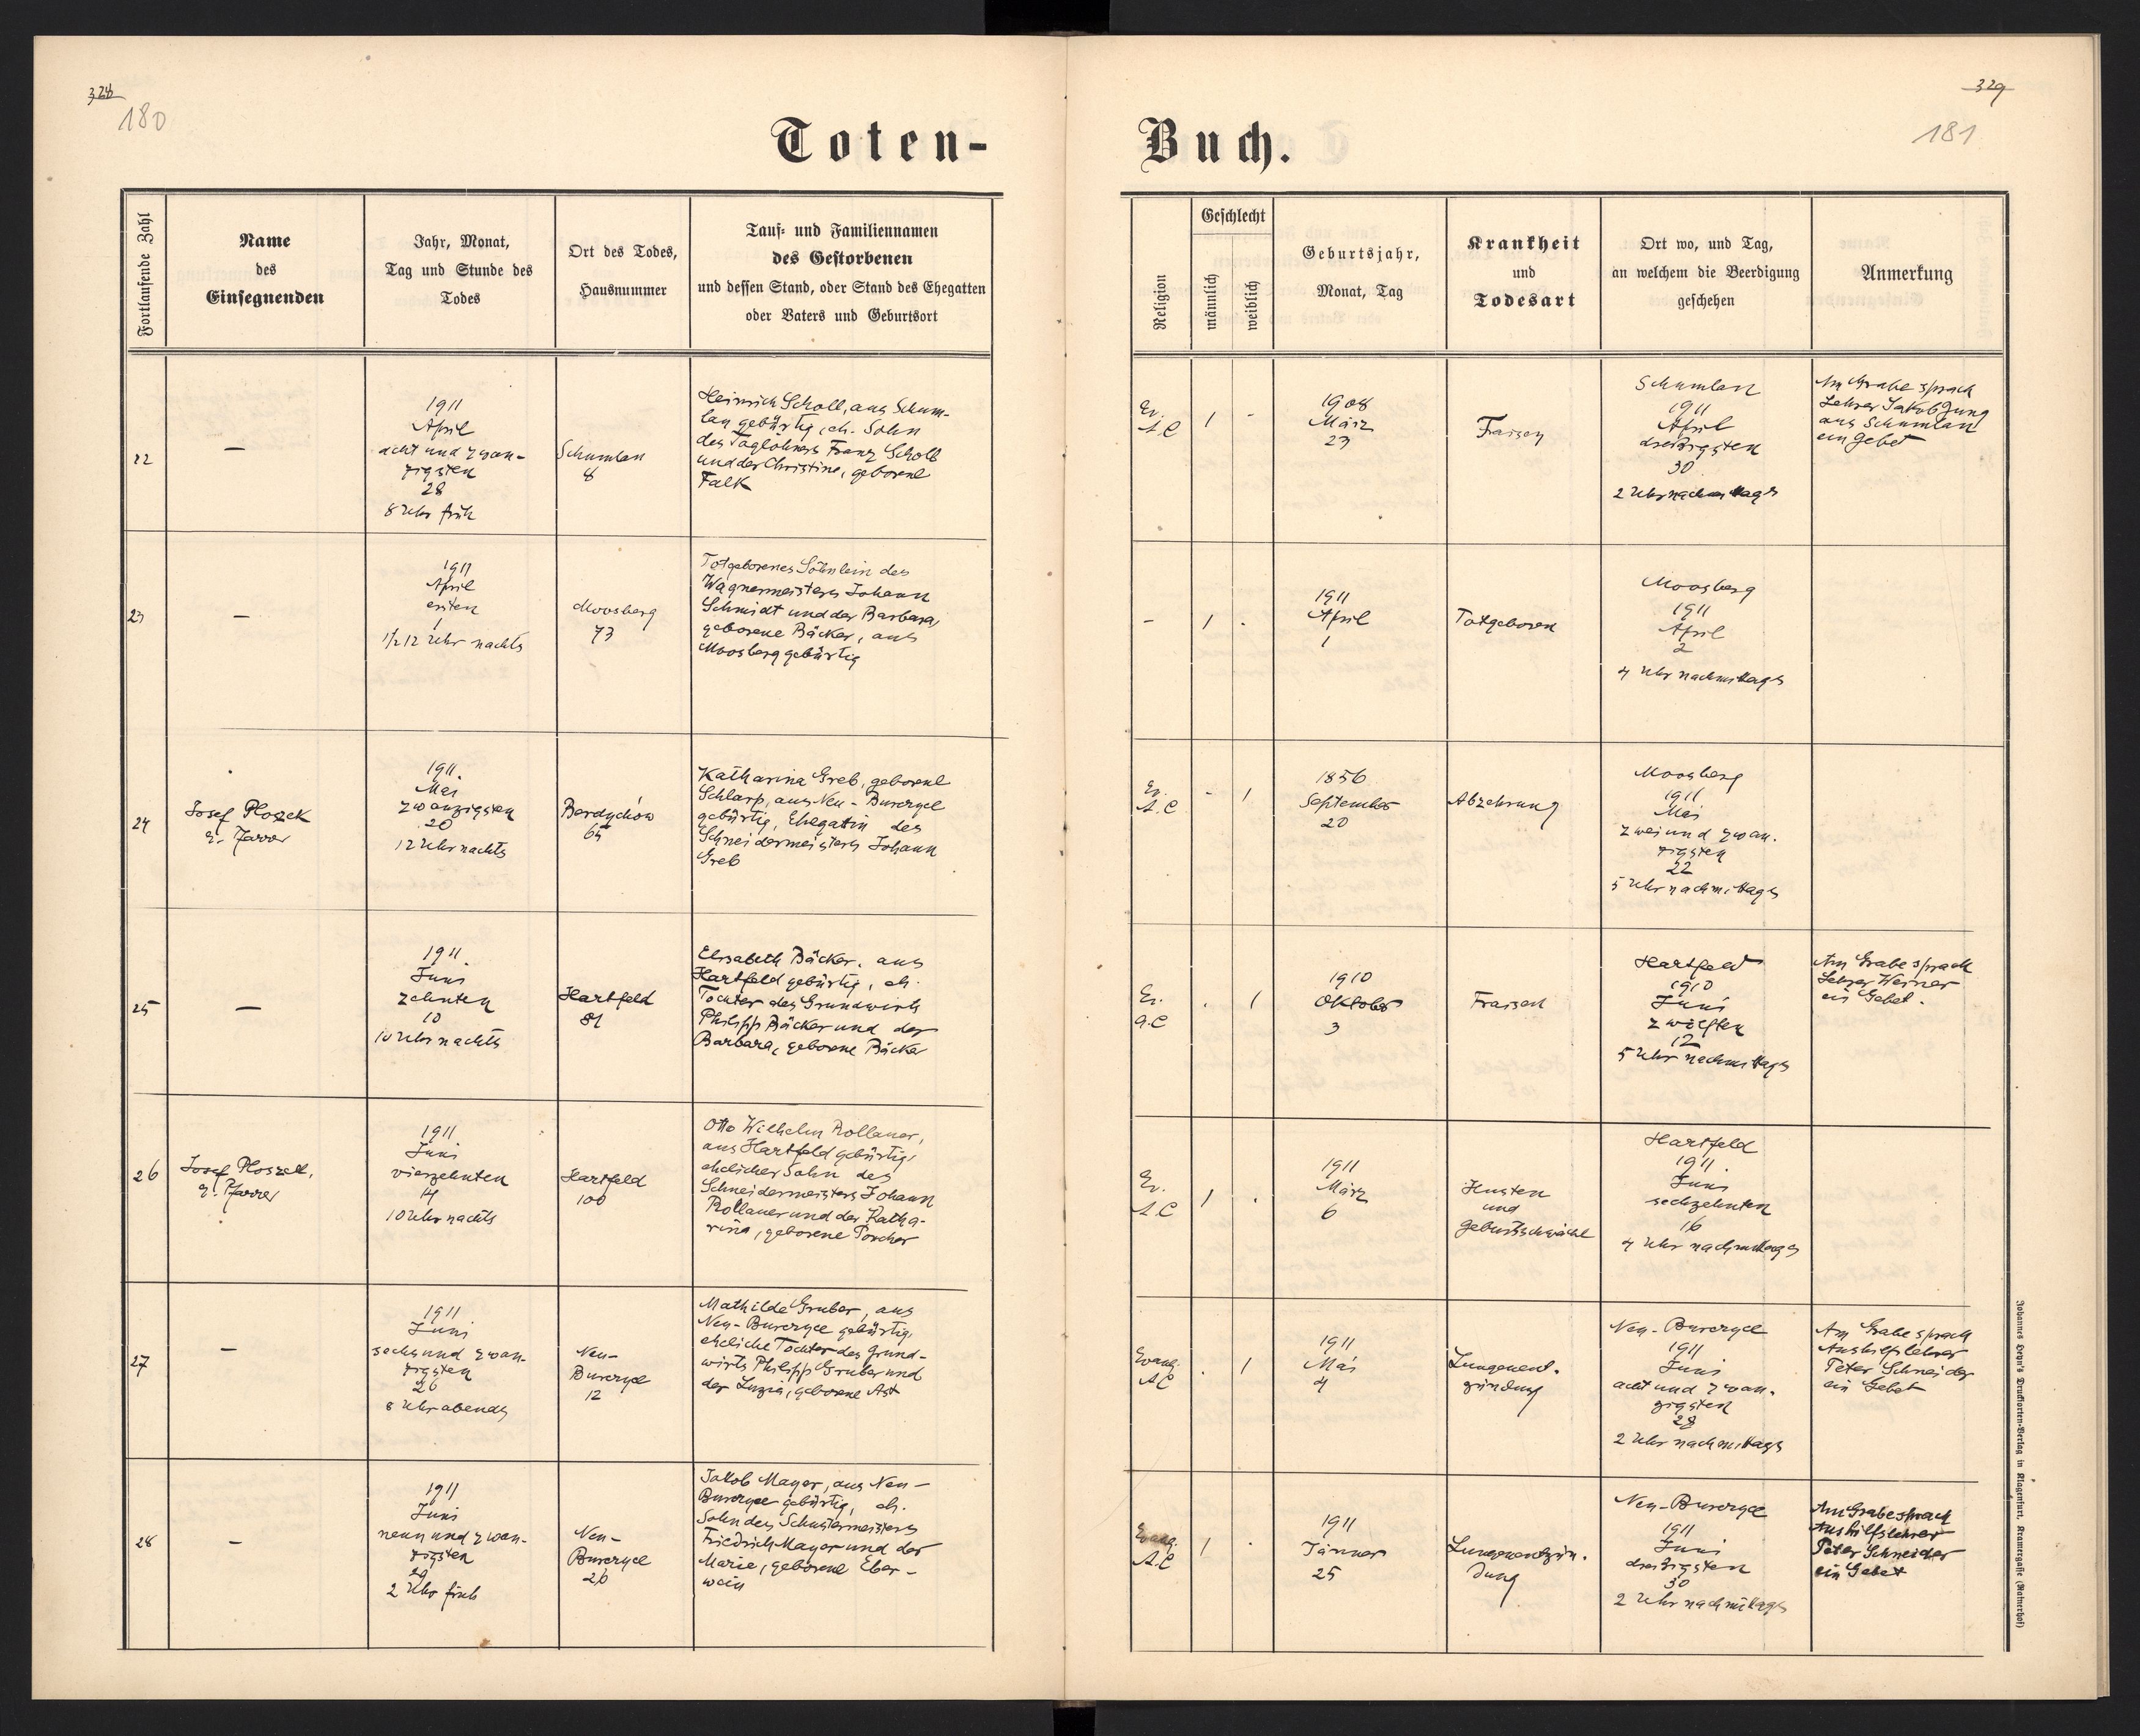 328
180
Toten-
Fortlaufende Zahl
Name
des
Einsegnenden
Jahr, Monat,
Tag und Stunde des
Todes
Ort des Todes,
Hausnummer
Tauf- und Familiennamen
des Gestorbenen
und dessen Stand, oder Stand des Ehegatten
oder Vaters und Geburtsort
22
—
1911
April
acht und zwan-
zigsten
28
8 Uhr früh
Schumlau
8
Heinrich Scholl, aus Schum-
lau gebürtig, eh. Sohn
des Taglöhners Franz Scholl
und der Christine, geborene
Falk
23
—
1911
April
ersten
1
1/2 12 Uhr nachts
Moosberg
73
Totgeborenes Söhnlein des
Wagnermeisters Johann
Schmidt und der Barbara,
geborene Bäcker, aus
Moosberg gebürtig
24
Josef Ploszek
e. Pfarrer
1911.
Mai
zwanzigsten
20
12 Uhr nachts
Berdychów
65
Katharina Greb, geborene
Schlarp, aus Neu-Burczyce
gebürtig, Ehegattin des
Schneidermeisters Johann
Greb
25
—
1911.
Juni
zehnten
10
10 Uhr nachts
Hartfeld
81
Elisabeth Bäcker, aus
Hartfeld gebürtig, eh.
Tochter des Grundwirts
Philipp Bäcker und der
Barbara, geborene Bäcker
26
Josef Ploszek,
e. Pfarrer
1911.
Juni
vierzehnten
14
10 Uhr nachts
Hartfeld
100
Otto Wilhelm Rollauer,
aus Hartfeld gebürtig,
ehelicher Sohn des
Schneidermeisters Johann
Rollauer und der Katha-
rina, geborene Porcher
27
—
1911
Juni
sechs und zwan-
zigsten
26
8 Uhr abends
Neu-
Burczyce
12
Mathilde Gruber, aus
Neu-Burczyce gebürtig,
eheliche Tochter des Grund-
wirts Philipp Gruber und
der Luzia, geborene Ast
28
—
1911
Juni
neun und zwan-
zigsten
29
2 Uhr früh
Neu-
Burczyce
26
Jakob Mayer, aus Neu-
Burczyce gebürtig, eh.
Sohn des Schustermeisters
Friedrich Mayer und der
Marie, geborene Eber-
wein
329
181
Buch.
Religion
Geschlecht
männlich
weiblich
Geburtsjahr,
Monat, Tag
Krankheit
und
Todesart
Ort wo, und Tag,
an welchem die Beerdigung
geschehen
Anmerkung
Ev.
A.C
1 -
1908
März
23
Fraisen
Schumlau
1911
April
dreißigsten
30
2 Uhr nachmittags
Am Grabe sprach
Lehrer Jakob Jung
aus Schumlau
ein Gebet
- 1 .
1911
April
1
Totgeboren
Moosberg
1911
April
2
4 Uhr nachmittags
Ev.
A.C
- 1
1856
September
20
Abzehrung
Moosberg
1911
Mai
zwei und zwan-
zigsten
22
5 Uhr nachmittags
Ev.
A.C
. 1
1910
Oktober
3
Fraisen
Hartfeld
1910
Juni
zwölften
12
5 Uhr nachmittags
Am Grabe sprach
Lehrer Werner
ein Gebet.
Ev.
A.C
1 .
1911
März
6
Husten
und
Geburtsschwäche
Hartfeld
1911.
Juni
sechzehnten
16
4 Uhr nachmittags
Evang.
AC
. 1
1911
Mai
4
Lungenent-
zündung
Neu-Burczyce
1911
Juni
acht und zwan-
zigsten
28
2 Uhr nachmittags
Am Grabe sprach
Aushilfslehrer
Peter Schneider
ein Gebet
Evang.
A.C
1 .
1911
Jänner
25
Lungenentzün-
dung
Neu-Burczyce
1911
Juni
dreißigsten
30
2 Uhr nachmittags
Am Grabe sprach
Aushilfslehrer
Peter Schneider
ein Gebet
Johannes Heyn's Drucksorten-Verlag in Klagenfurt, Kramergasse